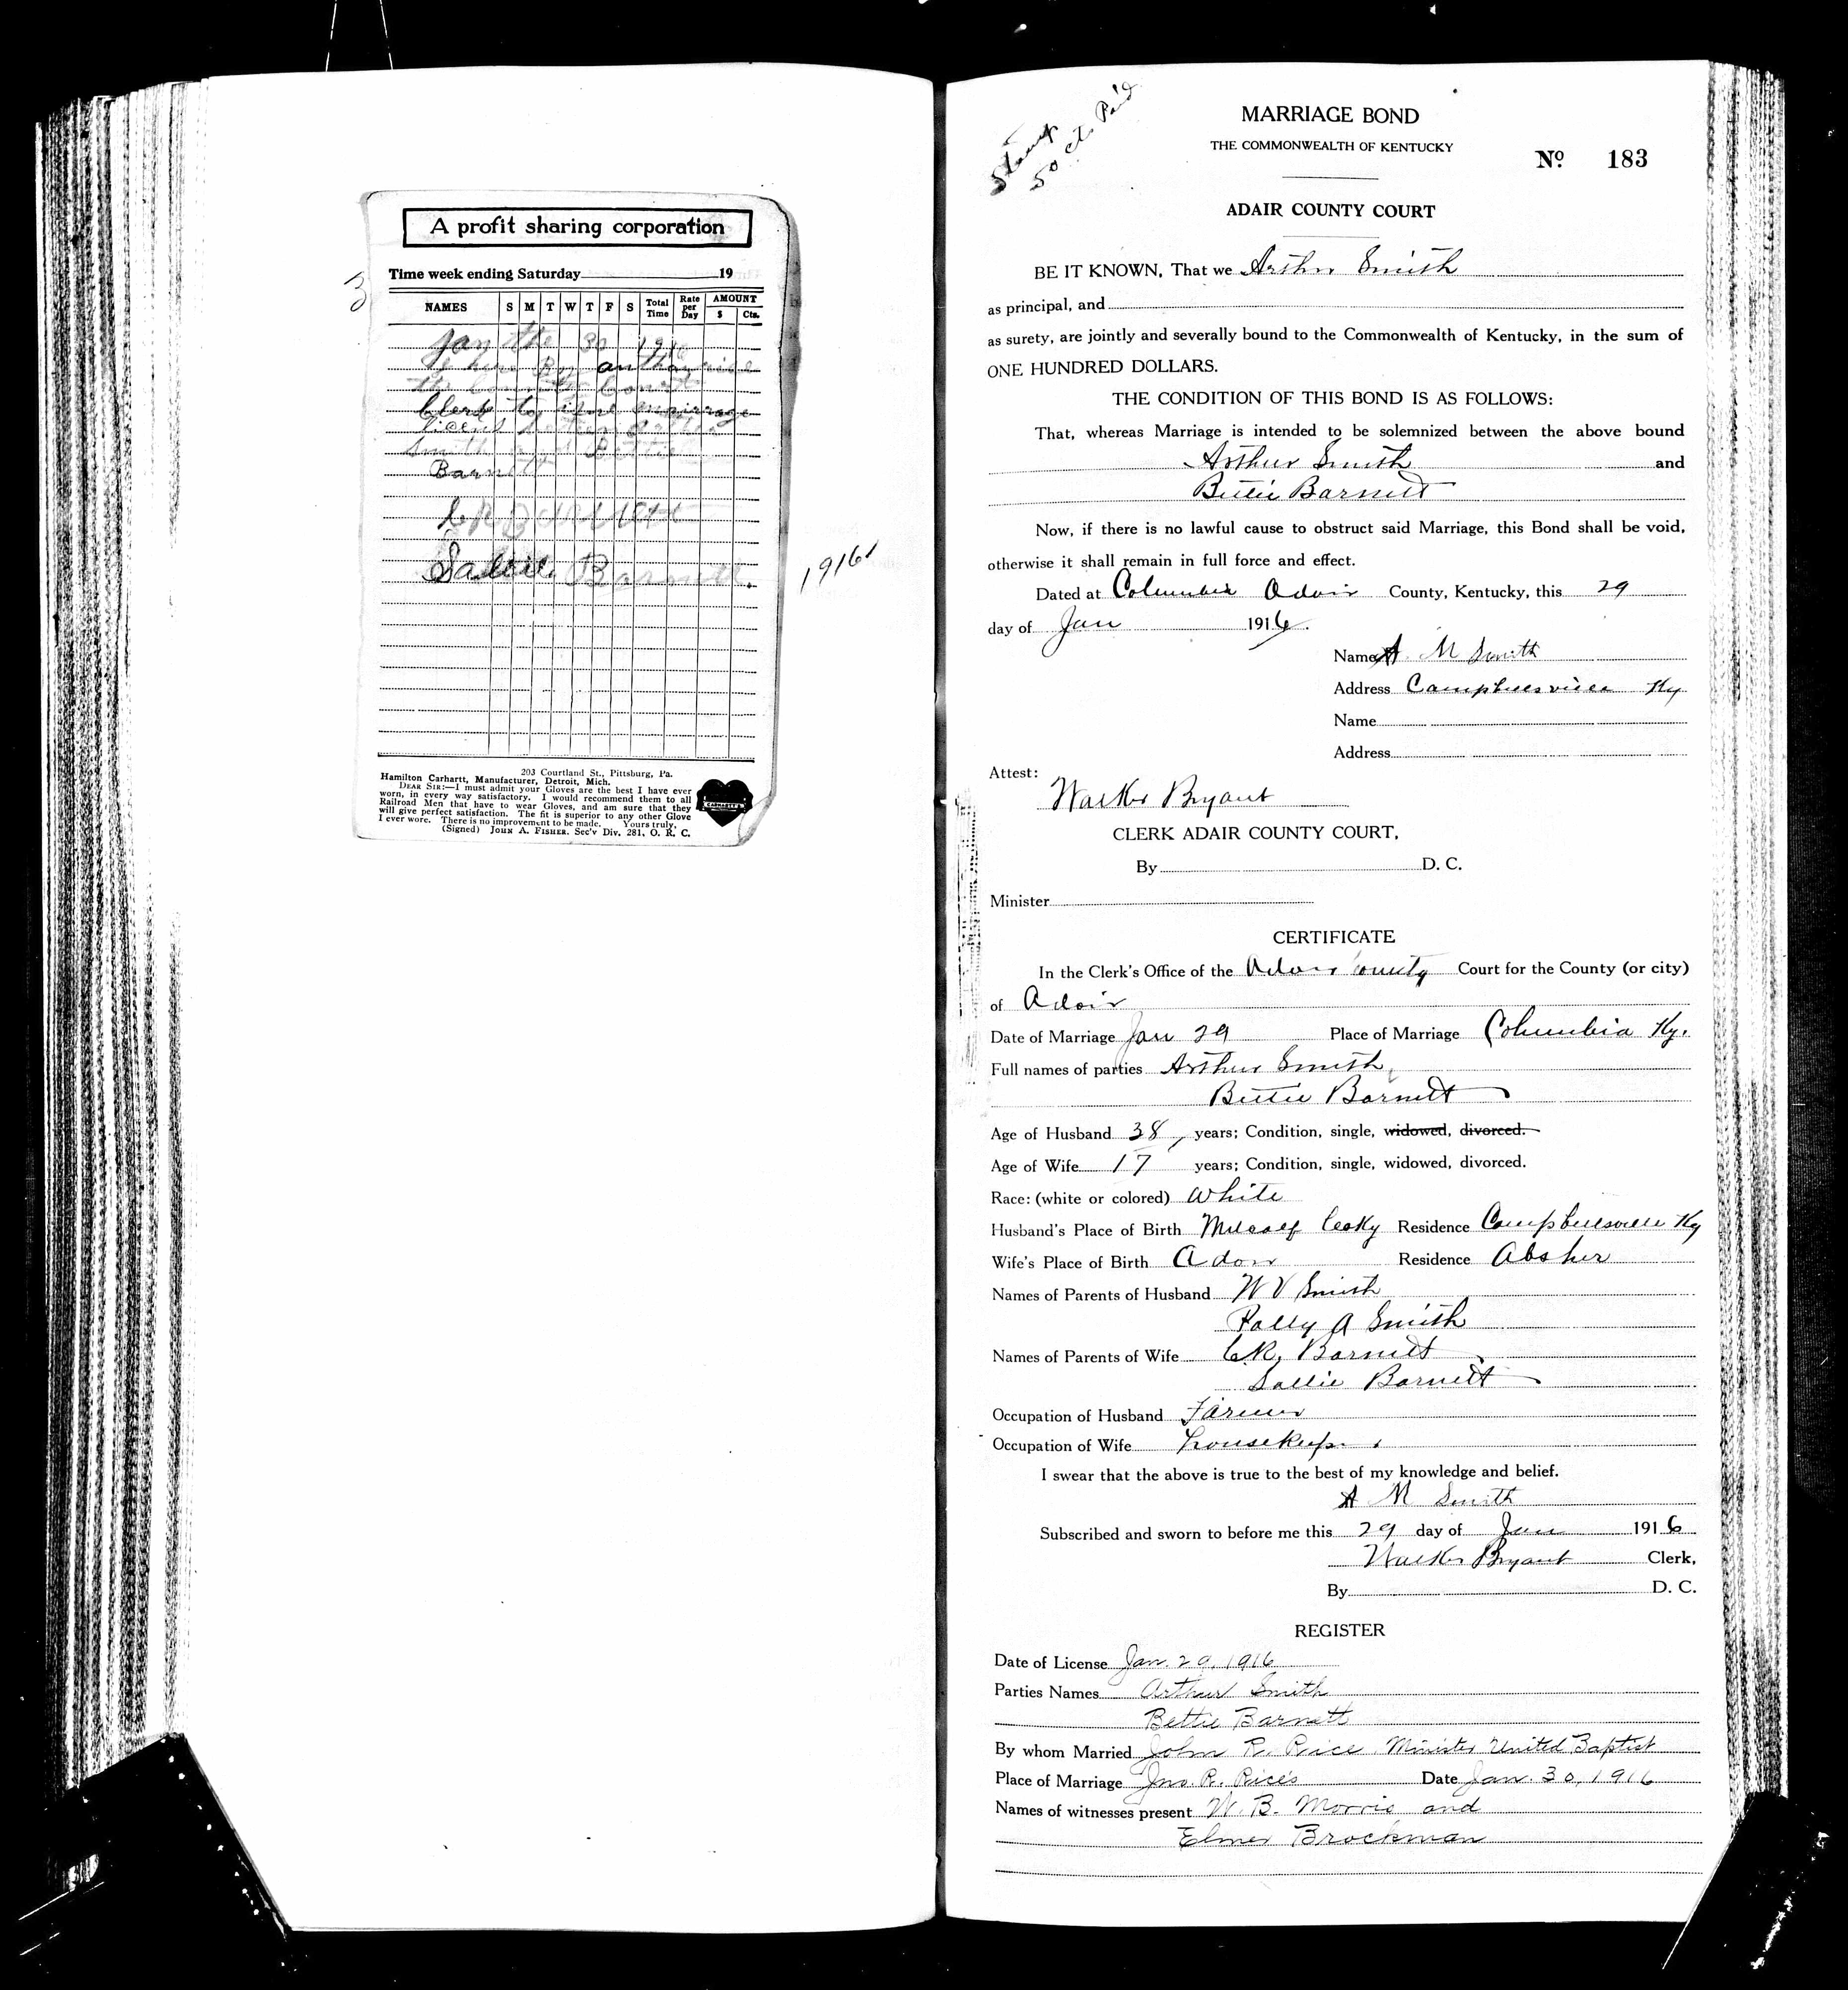 A profit sharing corporation
Time week ending Saturday 19
NAMES S M T W T F S Total Time Rate per Day AMOUNT $ Cts.
Jan the 30 1916
I her By authorise
the County Court
Clerk to isue mairrage
licens
Smith and Bettie
Barnett
C R Barnett
Sallie Barnett.
1916
203 Courtland St., Pittsburg, Pa.
Hamilton Carhartt, Manufacturer, Detroit, Mich.
DEAR SIR:—I must admit your Gloves are the best I have ever
worn, in every way satisfactory. I would recommend them to all
Railroad Men that have to wear Gloves, and am sure that they
will give perfect satisfaction. The fit is superior to any other Glove
I ever wore. There is no improvement to be made. Yours truly,
(Signed) JOHN A. FISHER. Sec'y Div. 281, O. R. C.
CARHARTT'S
Stamp
50 ct. Paid
MARRIAGE BOND
THE COMMONWEALTH OF KENTUCKY
No 183
ADAIR COUNTY COURT
BE IT KNOWN, That we Arthur Smith
as principal, and
as surety, are jointly and severally bound to the Commonwealth of Kentucky, in the sum of
ONE HUNDRED DOLLARS.
THE CONDITION OF THIS BOND IS AS FOLLOWS:
That, whereas Marriage is intended to be solemnized between the above bound
Arthur Smith and
Bettie Barnett
Now, if there is no lawful cause to obstruct said Marriage, this Bond shall be void,
otherwise it shall remain in full force and effect.
Dated at Columbia Adair County, Kentucky, this 29
day of Jan 1916.
Name A. M Smith
Address Campbellsville Ky.
Name
Address
Attest:
Walker Bryant
CLERK ADAIR COUNTY COURT,
By D. C.
Minister
CERTIFICATE
In the Clerk's Office of the Adair County Court for the County (or city)
of Adair
Date of Marriage Jan 29 Place of Marriage Columbia Ky.
Full names of parties Arthur Smith
Bettie Barnett
Age of Husband 38, years; Condition, single, widowed, divorced.
Age of Wife 17 years; Condition, single, widowed, divorced.
Race: (white or colored) White
Husband's Place of Birth Metcalf Co Ky Residence Campbellsville Ky
Wife's Place of Birth Adair Residence Absher
Names of Parents of Husband W V Smith
Polly A Smith
Names of Parents of Wife C R, Barnett
Sallie Barnett
Occupation of Husband Farmer
Occupation of Wife housekeeper
I swear that the above is true to the best of my knowledge and belief.
A M Smith
Subscribed and sworn to before me this 29 day of Jan 1916
Walker Bryant Clerk,
By D. C.
REGISTER
Date of License Jan. 29, 1916
Parties Names Arthur Smith
Bettie Barnett
By whom Married John R. Rice Minister United Baptist
Place of Marriage Jno. R. Rice's Date Jan. 30, 1916
Names of witnesses present W. B. Morris and
Elmer Brockman